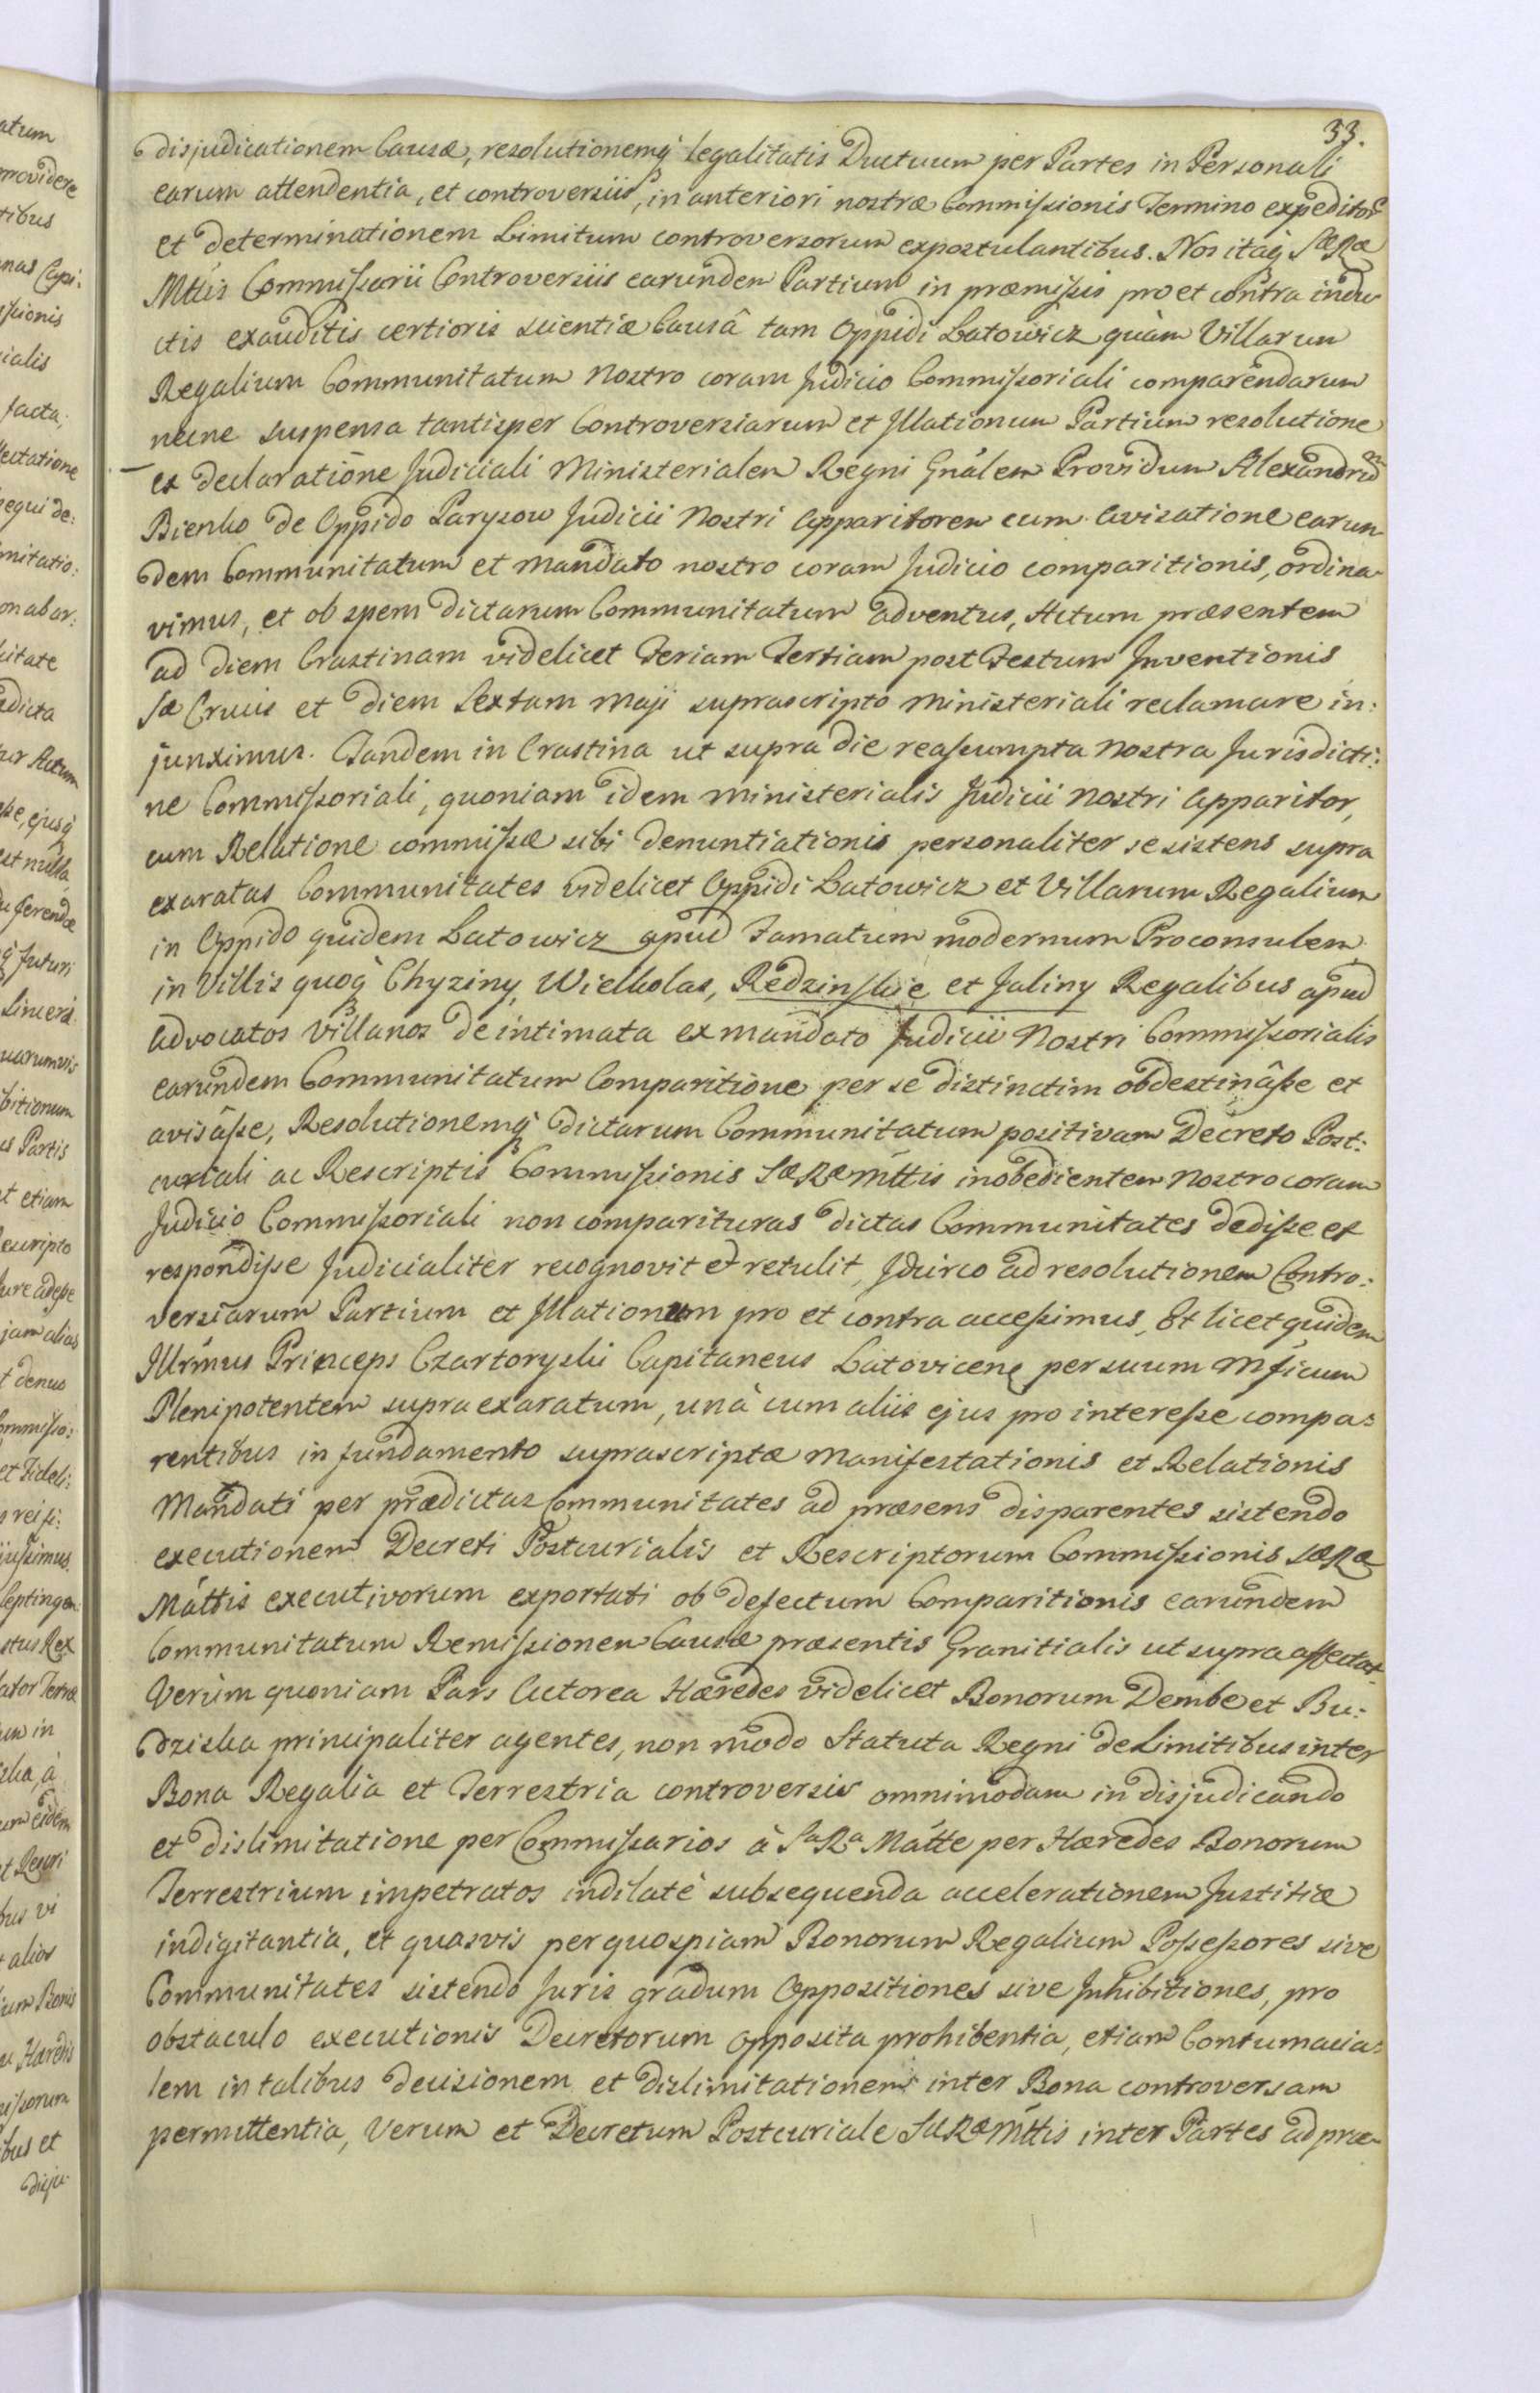 33.
disjudicationem Causæ, resolutionemq́ legalitatis Ductuum per Partes in Personali
earum attendentia, et controversiis, in anteriori nostræ Commissionis Termino expeditor
et determinationem Limitum controversorum expostulantibus. Nos itaq́ SæRæ
Mttis Commissarii Controversiis earundem Partium in præmissis pro et contra indu
ctis exauditis certioris scientiæ Causâ tam Oppidi Latowicz quàm Villarum
Regalium Communitatum Nostro coram Judicio Commissoriali comparendarum
nunc suspensa tantisper Controversiarum et Illationum Partium resolutione
ex declaratione Judiciali Ministerialem Regni Gnálem Providum Alexandrũ
Bienko de Oppido Parysow Judicii Nostri Apparitorem cum Avisatione earun
dem Communitatum et mandato nostro coram Judicio comparitionis, ordina
vimus, et ob spem dictarum Communitatum adventus, Actum præsentem
ad Diem Crastinam videlicet Feriam Tertiam post Festum Inventionis
Sæ Crucis et Diem Sextam Maji suprascripto Ministeriali reclamare in:
junximus. Tandem in Crastina ut supra die reassumpta Nostra Jurisdicti:
ne Commissoriali, quoniam idem Ministerialis Judicii Nostri Apparitor,
cum Relatione commissæ sibi denuntiationis personaliter se sistens supra
exaratas Communitates videlicet Oppidi Latowicz et Villarum Regalium
in Oppido quidem Latowicz apud Famatum modernum Proconsulem
in Villis quoq́ Chyziny, Wielkolas, Redzinskie et Jaliny Regalibus apud
Advocatos Villanos de intimata ex mandato Judicii Nostri Commissorialis
earundem Communitatum Comparitione per se distinctim obdestinâsse et
avisâsse, Resolutionemq́ dictarum Communitatum positivam Decreto Post:
curiali ac Rescriptis Commissionis SæRæ Mttis inobedientem Nostro coram
Judicio Commissoriali non comparituras dictas Communitates dedisse et
respondisse Judicialiter recognovit et retulit, Idcirco ad resolutionem Contro:
versiarum Partium et Illationum pro et contra accessimus, Et licet quidem
Illrmus Princeps Czartoryski Capitaneus Latovicenẹ per suum Mficum
Plenipotentem supra exaratum, unà cum aliis ejus pro interesse compa:
rentibus in fundamento suprascriptæ Manifestationis et Relationis
Mandati per prædictas Communitates ad præsens disparentes sistendo
executionem Decreti Postcurialis et Rescriptorum Commissionis SæRæ
Máttis executivorum exportati ob defectum Comparitionis earundem
Communitatum Remissionem Causæ præsentis Granitialis ut supra affectat
Verùm quoniam Pars Actorea Hæredes videlicet Bonorum Dembe et Bu:
dziska principaliter agentes, non modo Statuta Regni de Limitibus inter
Bona Regalia et Terrestria controversis omnimodam in disjudicando
et dislimitatione per Commissarios à SaRa Mátte per Hæredes Bonorum
Terrestrium impetratos indilatè subsequenda accelerationem Justitiæ
indigitantia, et quasvis per quospiam Bonorum Regalium Possessores sive
Communitates sistendo Juris gradum Oppositiones sive Inhibitiones, pro
obstaculo executionis Decretorum opposita prohibentia, etiam Contumacia:
lem in talibus decisionem et dislimitationem inter Bona controversam
permittentia, Verum et Decretum Postcuriale SæRæ Mttis inter Partes ad præ